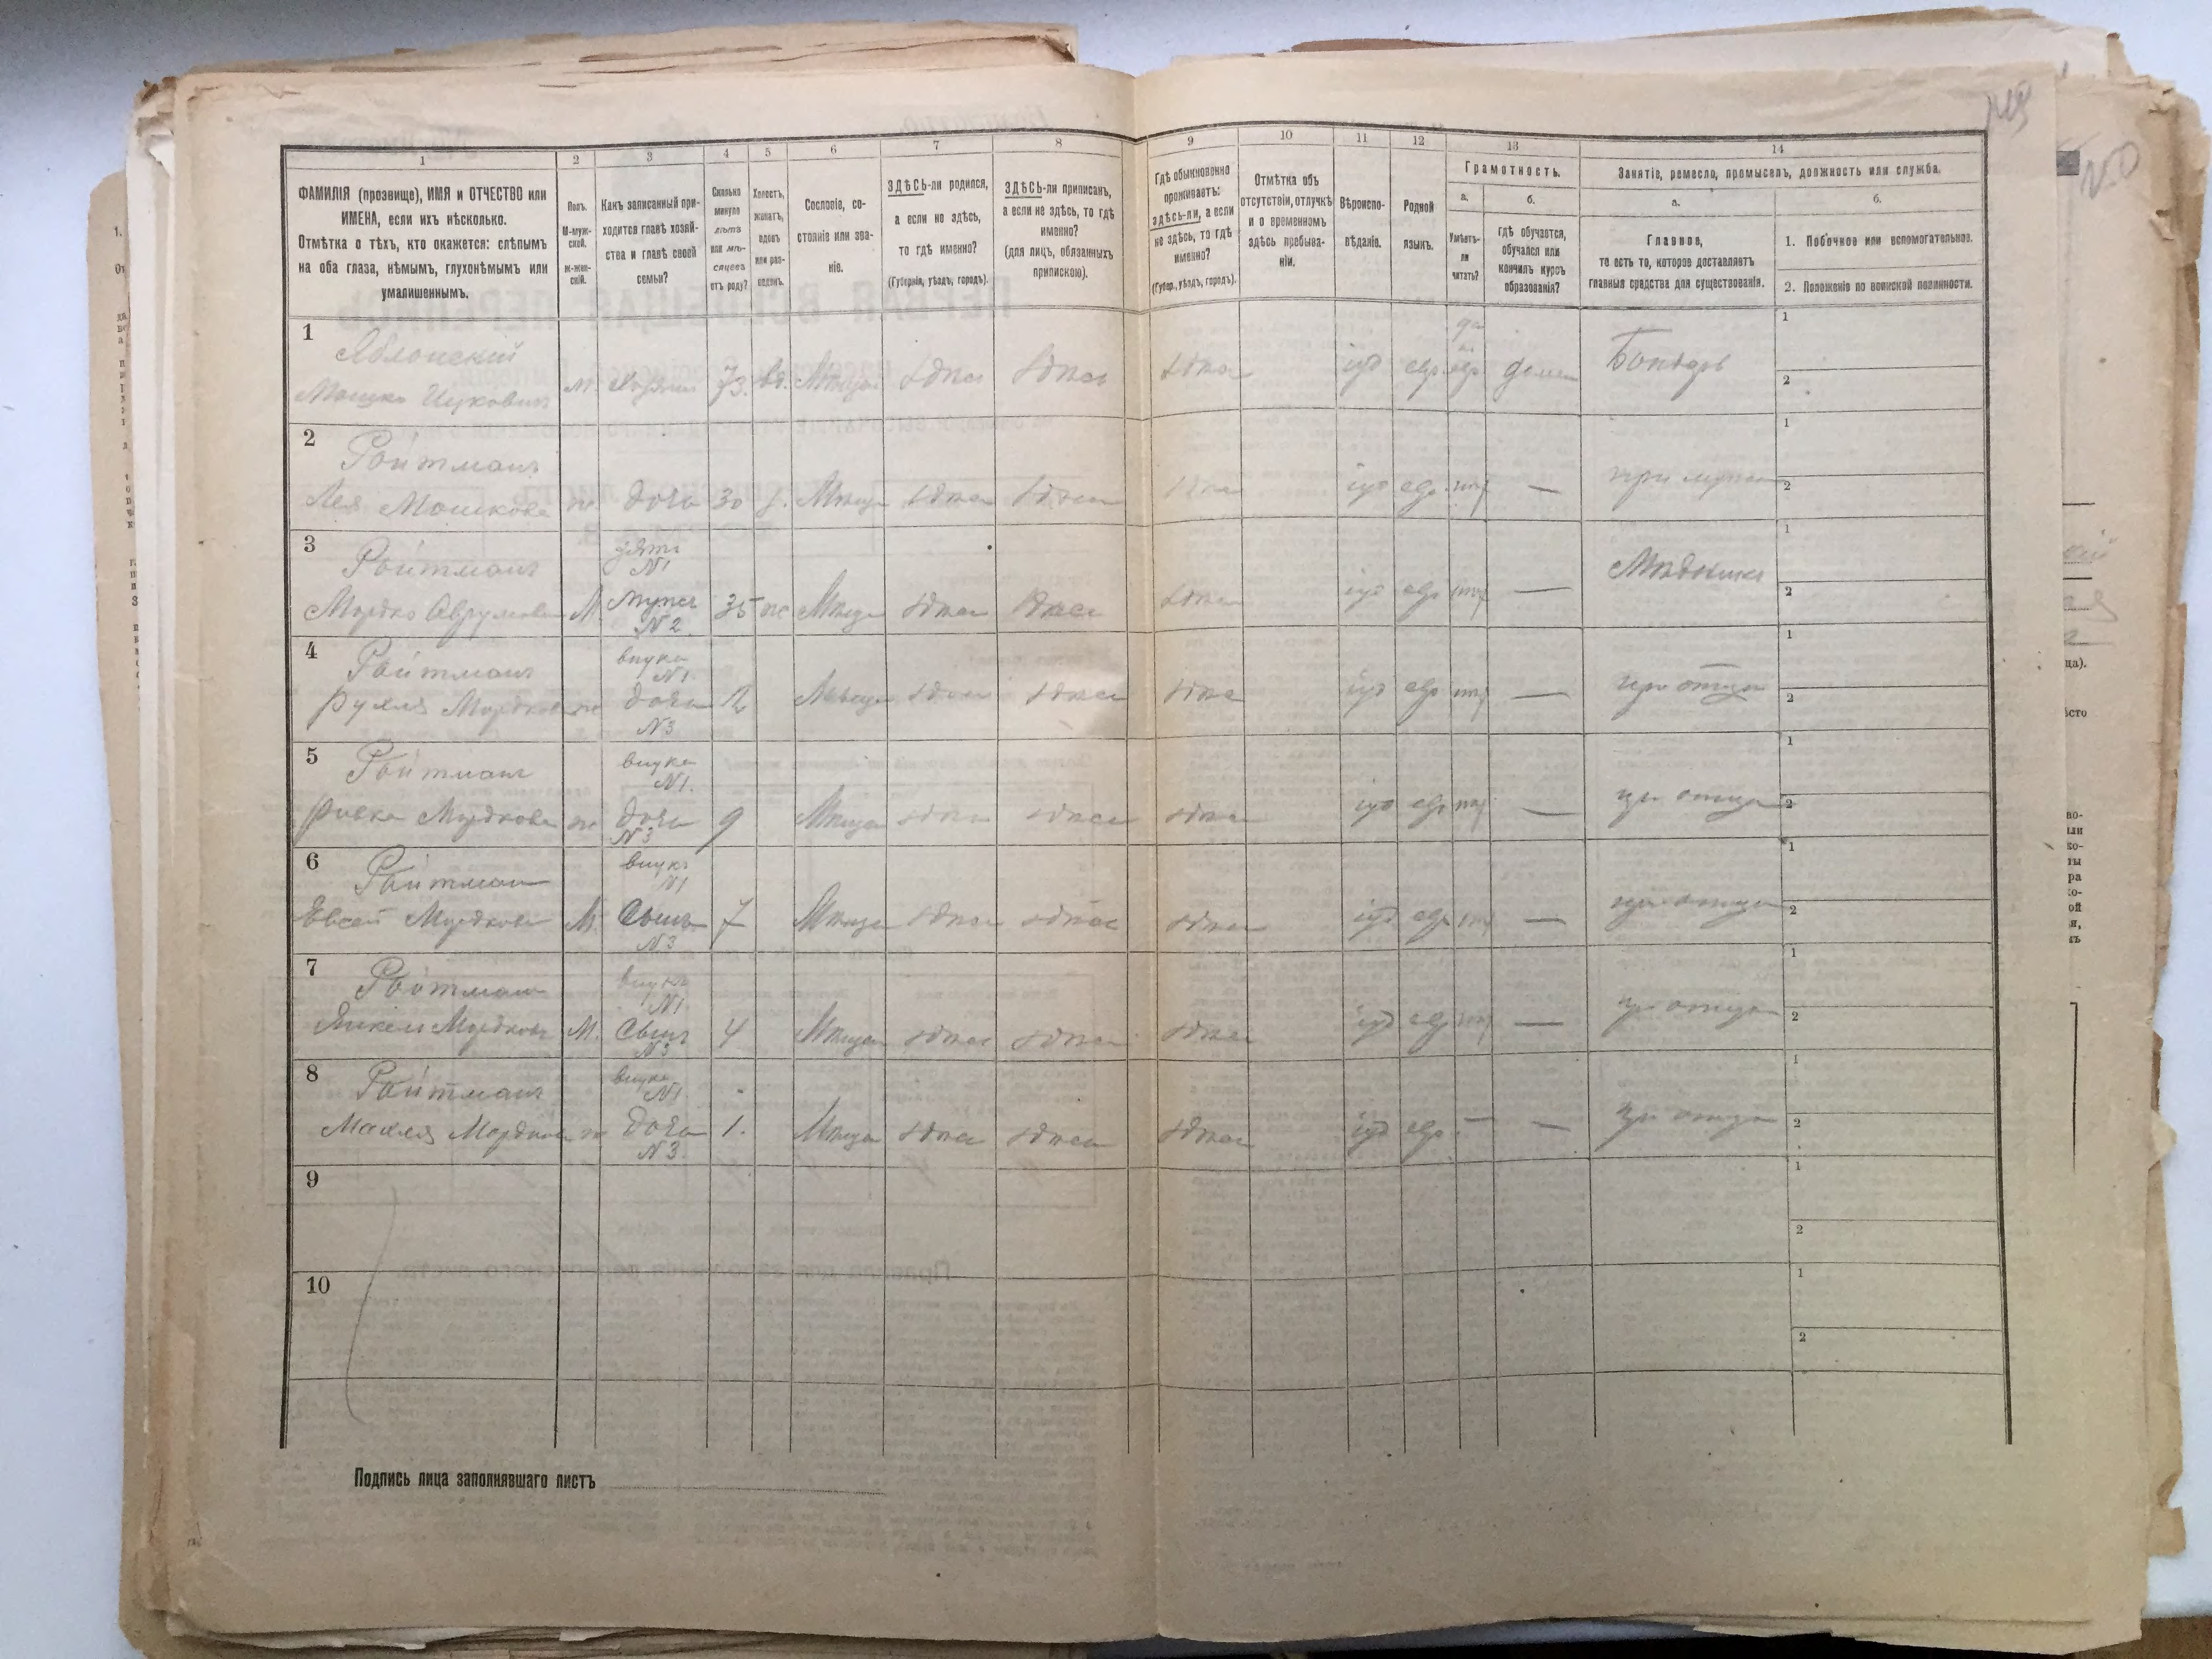 1
2
3
4
5
6
7
8
9
10
11
12
13
14
ФАМИЛІЯ (прозвище), ИМЯ и ОТЧЕСТВО или
ИМЕНА, если ихъ нѣсколько.
Отмѣтка о тѣхъ, кто окажется: слѣпымъ
на оба глаза, нѣмымъ, глухонѣмымъ или
умалишеннымъ.
Полъ.
М-муж-
ской.
ж-жен-
скій.
Какъ записанный при-
ходится главѣ хозяй-
ства и главѣ своей
семьи?
Сколько
минуло
лѣтъ
или мѣ-
сяцевъ
отъ роду?
Холостъ,
женатъ,
вдовъ
или раз-
веденъ.
Сословіе, со-
стояніе или зва-
ніе.
ЗДѢСЬ-ли родился,
а если не здѣсь,
то гдѣ именно?
(Губернія, уѣздъ, городъ).
ЗДѢСЬ-ли приписанъ,
а если не здѣсь, то гдѣ
именно?
(для лицъ, обязанныхъ
припискою).
Гдѣ обыкновенно
проживаетъ:
здѣсь-ли, а если
не здѣсь, то гдѣ
именно?
(Губер., уѣздъ, городъ).
Отмѣтка объ
отсутствіи, отлучкѣ
и о временномъ
здѣсь пребыва-
ніи.
Вѣроиспо-
вѣданіе.
Родной
языкъ.
Грамотность.
а.
Умѣетъ-
ли
читать?
б.
гдѣ обучается,
обучался или
кончилъ курсъ
образованія?
Занятіе, ремесло, промыселъ, должность или служба.
а.
Главное,
то есть то, которое доставляетъ
главныя средства для существованія.
б.
1. Побочное или вспомогательное.
2. Положеніе по воинской повинности.
1
Яблонскій
Мошко Ицковичъ М. Хозяинъ 73. вд. Мѣщан здѣсь здѣсь здѣсь іуд евр да евр дома Бондарь
1
2
2
Ройтманъ
Лея Мошкова ж. дочь 30 з. Мѣщан здѣсь здѣсь здѣсь іуд евр. нѣт — при мужѣ
1
2
3
Ройтманъ зять №1
Мордко Аврумовъ М. мужъ №2 35 ж Мѣщан здѣсь здѣсь здѣсь іуд евр нѣт — Мѣдникъ
1
2
4
Ройтманъ внука №1.
Рухля Мордкова ж дочь №3 12 Мѣщан здѣсь здѣсь здѣсь іуд евр нѣт — при отцѣ
1
2
5
Ройтманъ внука №1.
Ривка Мордкова ж дочь №3 9 Мѣщан здѣсь здѣсь здѣсь іуд евр нѣт — при отцѣ
1
2
6
Ройтман внукъ №1
Евсей Мордковъ М. Сынъ №3 7 Мѣщан здѣсь здѣсь здѣсь іуд евр нѣт — при отцѣ
1
2
7
Ройтман внукъ №1
Янкель Мордковъ М. Сынъ №3 4 Мѣщан здѣсь здѣсь здѣсь іуд евр нѣт — при отцѣ
1
2
8
Ройтманъ внука №1.
Махля Мордкова ж дочь №3. 1. Мѣщан здѣсь здѣсь здѣсь іуд евр — — при отцѣ
1
2
9
1
2
10
1
2
Подпись лица заполнявшаго листъ